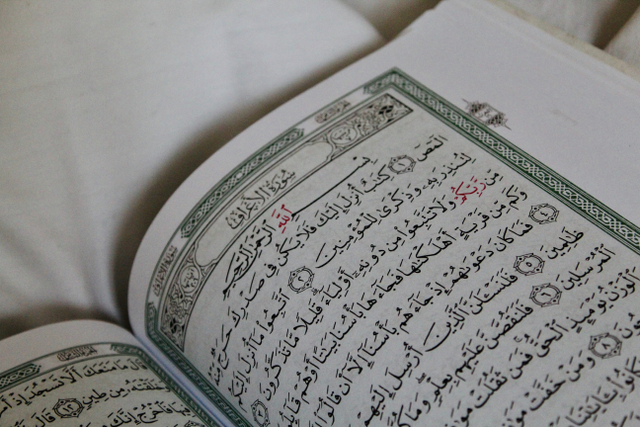 سُورَةُ الأَعْرَافِ
بِسْمِ ٱللَّهِ ٱلرَّحْمَٰنِ ٱلرَّحِيمِ
الٓمٓصٓ ١ كِتَٰبٌ أُنزِلَ إِلَيْكَ فَلَا يَكُن فِى صَدْرِكَ حَرَجٌ مِّنْهُ
لِتُنذِرَ بِهِۦ وَذِكْرَىٰ لِلْمُؤْمِنِينَ ٢ ٱتَّبِعُوا۟ مَآ أُنزِلَ إِلَيْكُم
مِّن رَّبِّكُمْ وَلَا تَتَّبِعُوا۟ مِن دُونِهِۦٓ أَوْلِيَآءَ قَلِيلًا مَّا تَذَكَّرُونَ ٣
وَكَم مِّن قَرْيَةٍ أَهْلَكْنَٰهَا فَجَآءَهَا بَأْسُنَا بَيَٰتًا أَوْ هُمْ قَآئِلُونَ
فَمَا كَانَ دَعْوَىٰهُمْ إِذْ جَآءَهُم بَأْسُنَآ إِلَّآ أَن قَالُوٓا۟
ظَٰلِمِينَ ٥ فَلَنَسْـَٔلَنَّ ٱلَّذِينَ أُرْسِلَ إِلَيْهِمْ
ٱلْمُرْسَلِينَ ٦ فَلَنَقُصَّنَّ عَلَيْهِم بِعِلْمٍ وَمَا
ٱلْوَزْنُ يَوْمَئِذٍ ٱلْحَقُّ فَمَن ثَقُلَتْ
٨ وَمَنْ خَفَّتْ
كَانُوا۟ بِـَٔايَٰتِنَا
مَا مَنَعَكَ أَلَّا تَسْجُدَ إِذْ
مِن طِينٍ ١٢ قَالَ
فَٱخْرُجْ إِنَّكَ